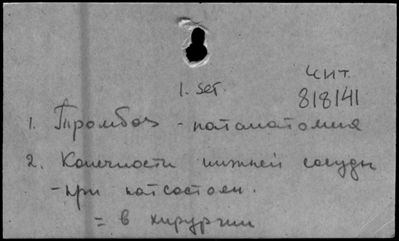 чит.
1. set. 818141
1. Тромбоз - патанатомия
2. Конечности нижней сосуды
- при патсостоян.
= в хирургии